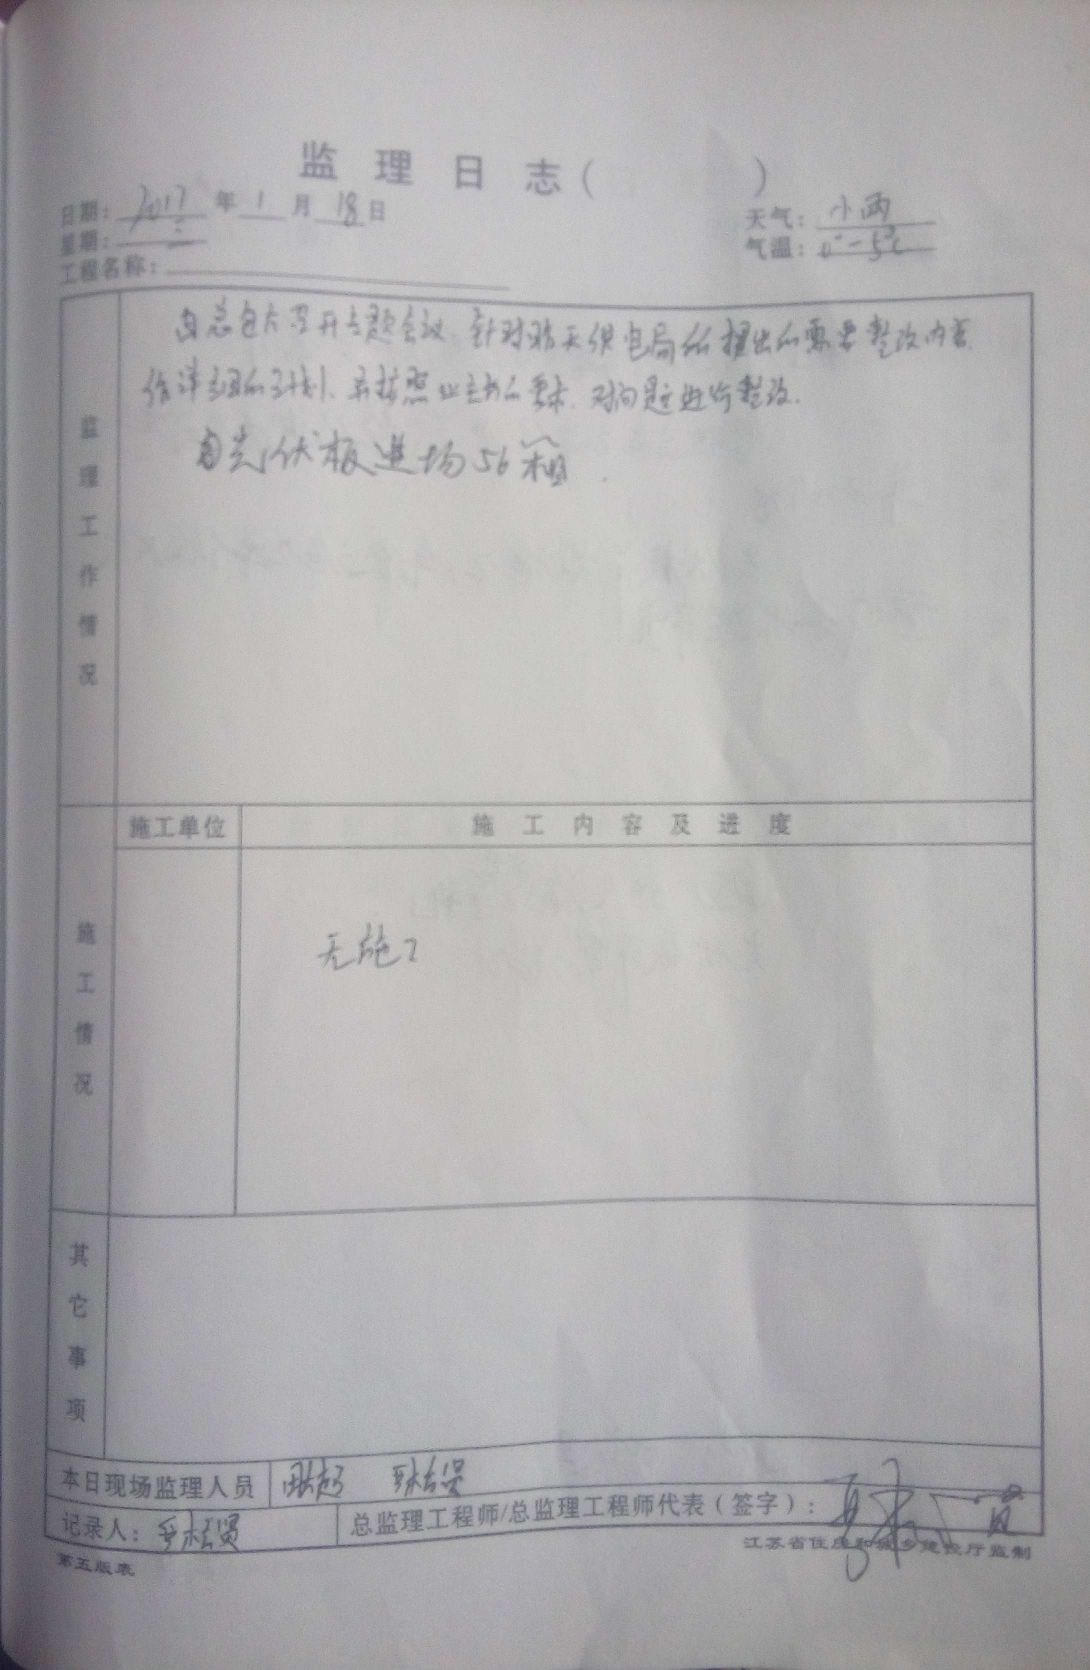 监理日志( )
日期: 2017 年 1 月 18 日
天气: 小雨
星期: 三
气温: 0°-5℃
工程名称:
由总包方召开专题会议,针对昨天供电局所提出的需要整改内容,
作详细的计划,并按照业主方的要求,对问题进行整改.
光伏板进场56箱.
监理工作情况
施工单位
施工内容及进度
无施工
施工情况
其它事项
本日现场监理人员
记录人:
总监理工程师/总监理工程师代表(签字):
第五版表
江苏省住房和城乡建设厅监制